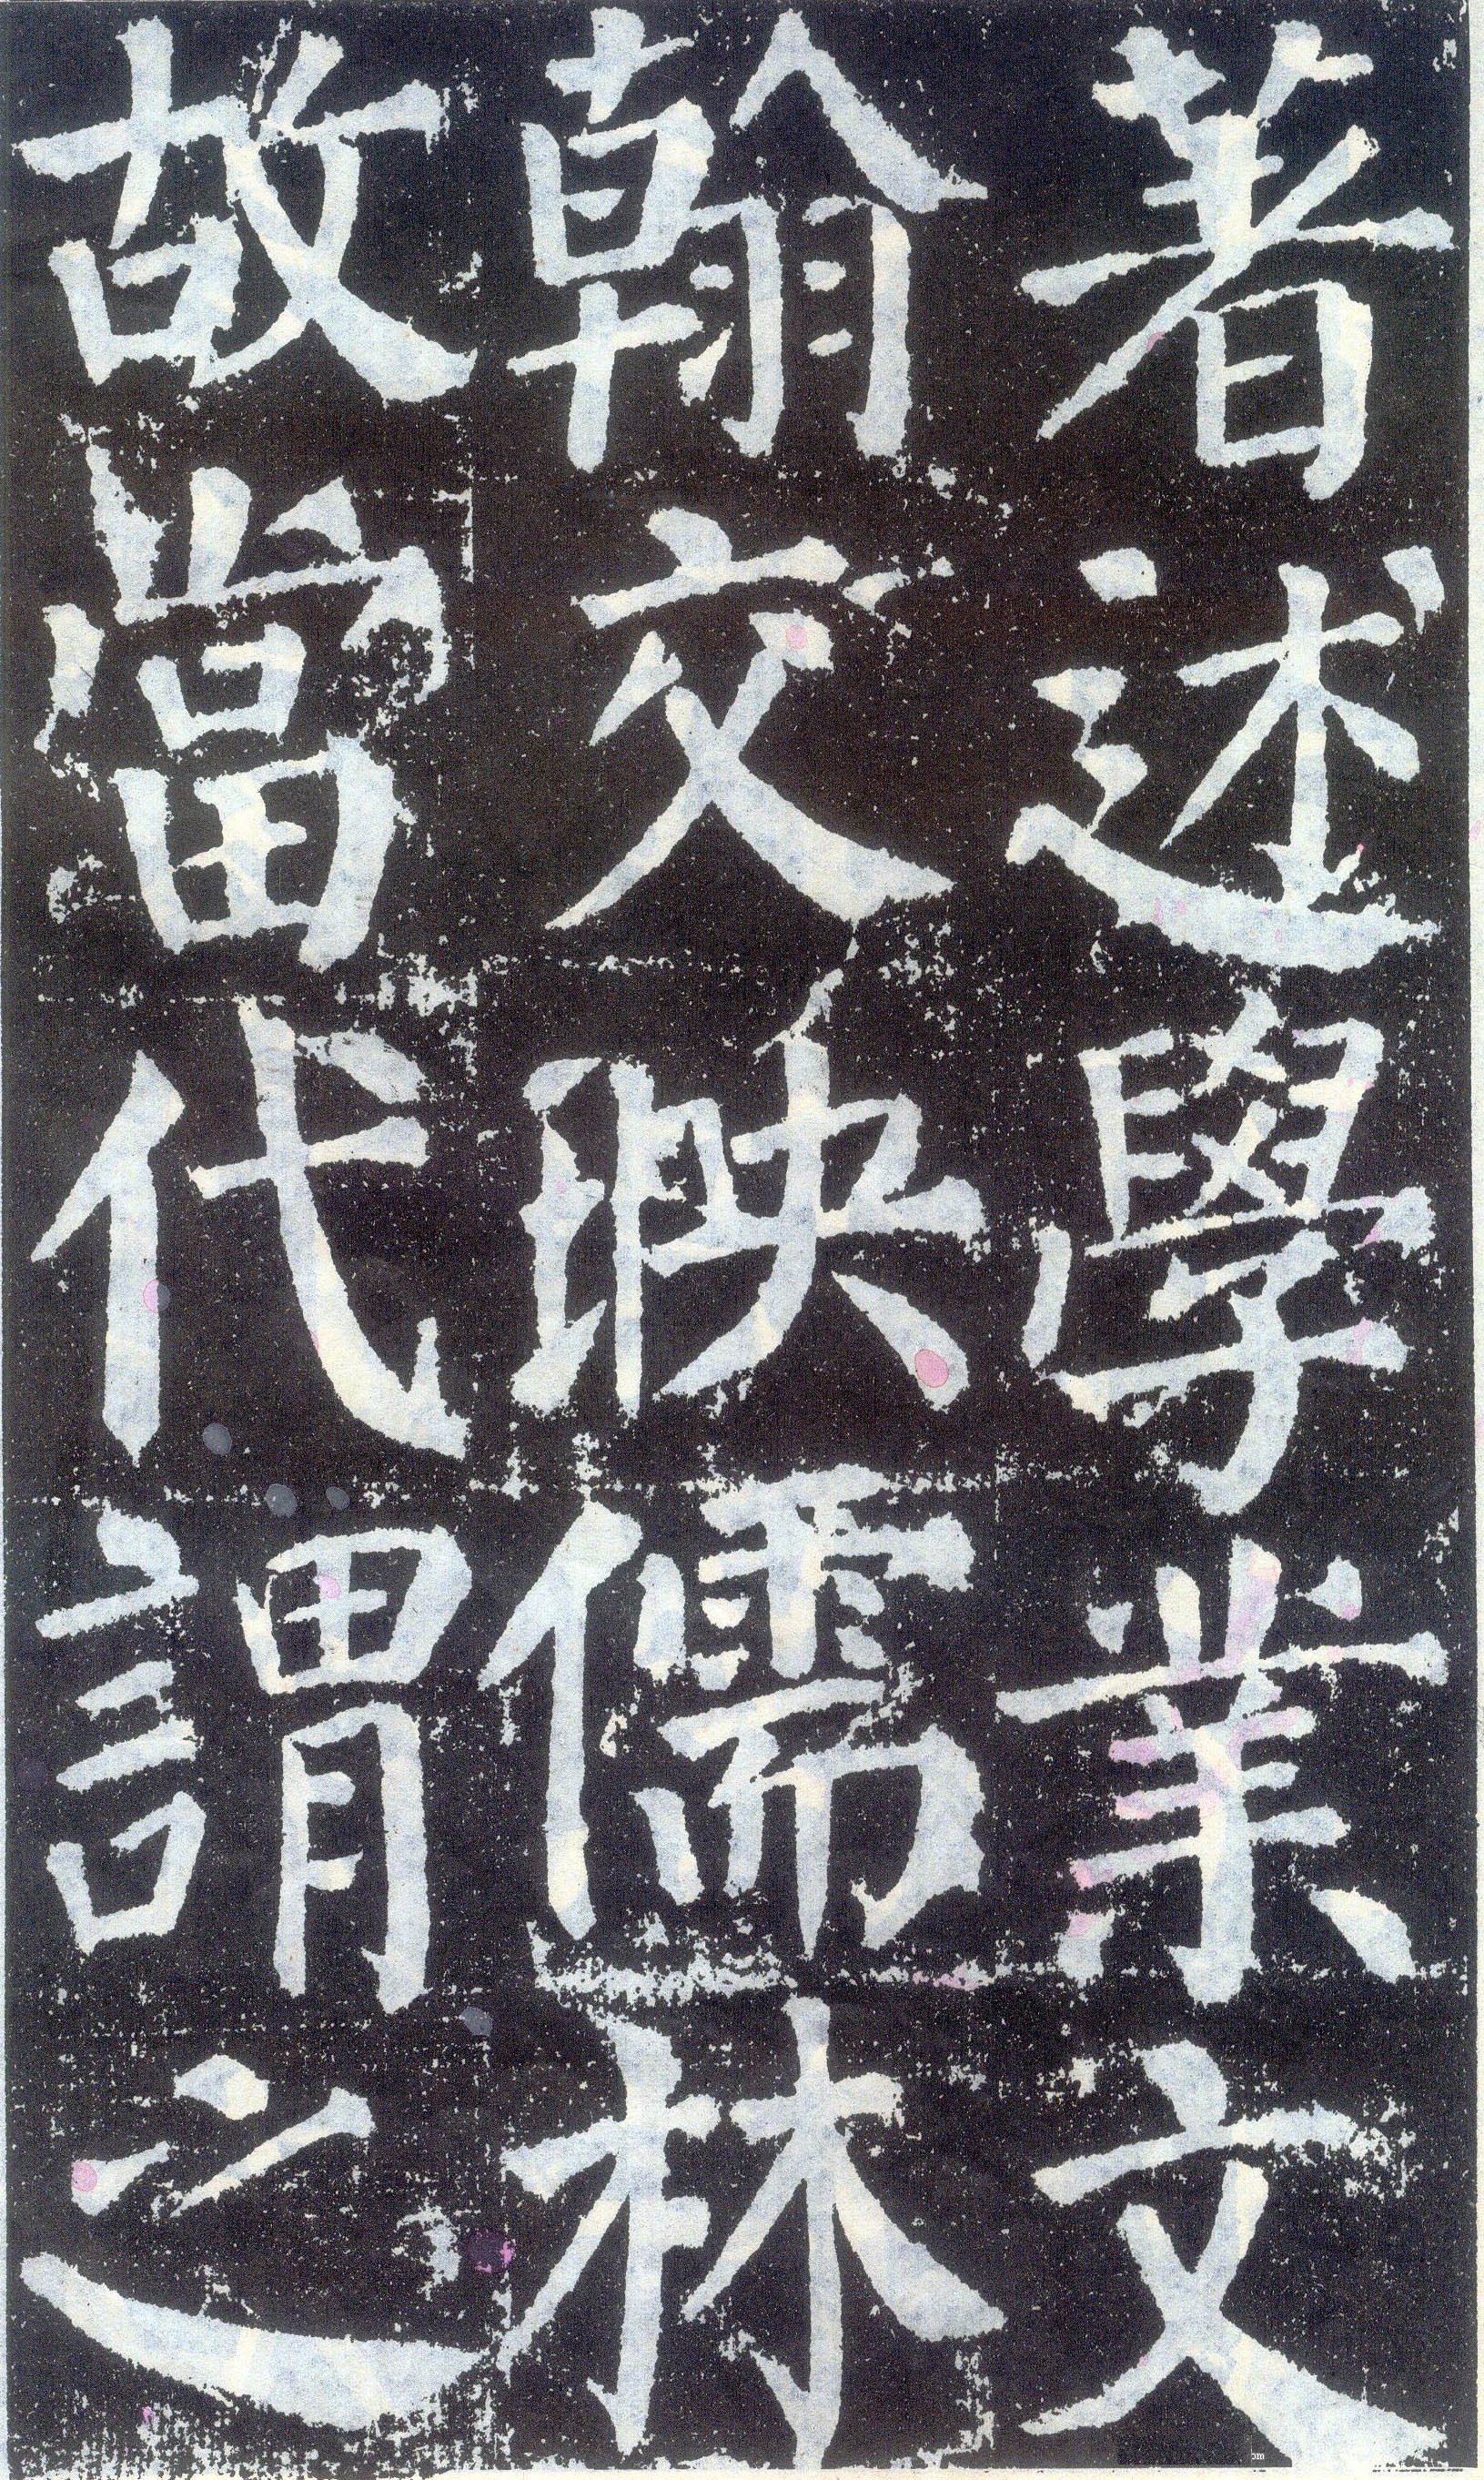 著述學業文
翰交映儒林
故當代謂之
om